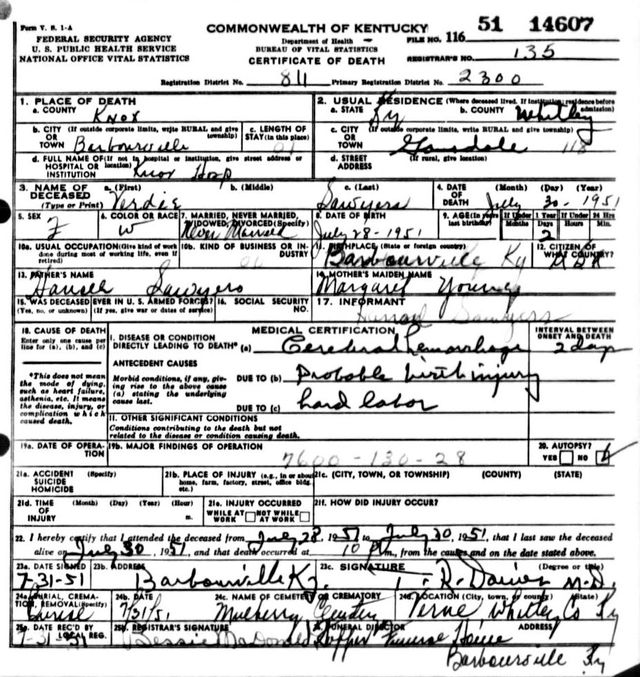 Form V. S. 1-A
FEDERAL SECURITY AGENCY
U. S. PUBLIC HEALTH SERVICE
NATIONAL OFFICE VITAL STATISTICS
COMMONWEALTH OF KENTUCKY
Department of Health
BUREAU OF VITAL STATISTICS
CERTIFICATE OF DEATH
FILE NO. 116 51 14607
REGISTRAR'S NO. 135
Registration District No. 811 Primary Registration District No. 2300
1. PLACE OF DEATH
a. COUNTY Knox
2. USUAL RESIDENCE (Where deceased lived. If institution: residence before admission)
a. STATE Ky b. COUNTY Whitley
b. CITY (If outside corporate limits, write RURAL and give township) OR TOWN Barbourville
c. LENGTH OF STAY (in this place)
c. CITY (If outside corporate limits, write RURAL and give township) OR TOWN 118
d. FULL NAME OF (If not in hospital or institution, give street address or location) HOSPITAL OR INSTITUTION Knox Hosp
d. STREET ADDRESS (If rural, give location)
3. NAME OF DECEASED (Type or Print) a. (First) Verdie b. (Middle) c. (Last) Sawyers
4. DATE OF DEATH (Month) (Day) (Year) July 30 - 1951
5. SEX F
6. COLOR OR RACE W
7. MARRIED, NEVER MARRIED, WIDOWED, DIVORCED (Specify) Never Married
8. DATE OF BIRTH July 28 - 1951
9. AGE (In years last birthday) If Under 1 Year Months Days 2 If Under 24 Hrs
10a. USUAL OCCUPATION (Give kind of work done during most of working life, even if retired)
10b. KIND OF BUSINESS OR INDUSTRY
11. BIRTHPLACE (State or foreign country) Barbourville Ky
12. CITIZEN OF WHAT COUNTRY?
13. FATHER'S NAME Sawyers
14. MOTHER'S MAIDEN NAME Margaret Young
15. WAS DECEASED EVER IN U. S. ARMED FORCES? (Yes, no, or unknown) (If yes, give war or dates of service)
16. SOCIAL SECURITY NO.
17. INFORMANT Sawyers
18. CAUSE OF DEATH
Enter only one cause per line for (a), (b), and (c)
MEDICAL CERTIFICATION
INTERVAL BETWEEN ONSET AND DEATH
I. DISEASE OR CONDITION DIRECTLY LEADING TO DEATH* (a) Cerebral hemorrhage 2 days
*This does not mean the mode of dying, such as heart failure, asthenia, etc. It means the disease, injury, or complication which caused death.
ANTECEDENT CAUSES
Morbid conditions, if any, giving rise to the above cause (a) stating the underlying cause last.
DUE TO (b) Probable birth injury
DUE TO (c) hard labor
II. OTHER SIGNIFICANT CONDITIONS
Conditions contributing to the death but not related to the disease or condition causing death.
19a. DATE OF OPERATION
19b. MAJOR FINDINGS OF OPERATION
7600-130-28
20. AUTOPSY?
YES NO
21a. ACCIDENT (Specify) SUICIDE HOMICIDE
21b. PLACE OF INJURY (e.g., in or about home, farm, factory, street, office bldg., etc.)
21c. (CITY, TOWN, OR TOWNSHIP) (COUNTY) (STATE)
21d. TIME OF INJURY (Month) (Day) (Year) (Hour) m.
21e. INJURY OCCURRED WHILE AT WORK NOT WHILE AT WORK
21f. HOW DID INJURY OCCUR?
22. I hereby certify that I attended the deceased from July 28, 1951 to July 30, 1951, that I last saw the deceased
alive on July 30, 1951, and that death occurred at 10 P.m., from the causes and on the date stated above.
23a. DATE SIGNED 7-31-51
23b. ADDRESS Barbourville Ky.
23c. SIGNATURE (Degree or title) T. R. Davies M.D.
24a. BURIAL, CREMATION, REMOVAL (Specify) Burial
24b. DATE 7/31/51
24c. NAME OF CEMETERY OR CREMATORY Mulberry Cemetery
24d. LOCATION (City, town, or county) (State) Verne Whitley Co Ky
25a. DATE REC'D BY LOCAL REG. 7-31-51
25b. REGISTRAR'S SIGNATURE Bessie McDonald
26. FUNERAL DIRECTOR ADDRESS Hopper Funeral Home
Barbourville Ky